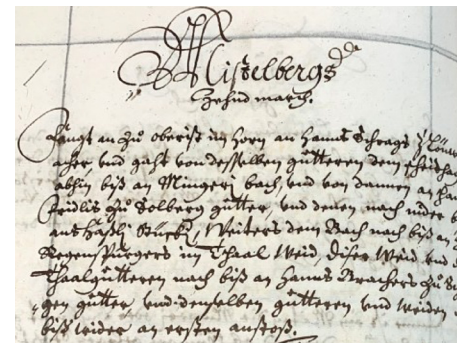 Mistelbergs
Zehnd march.
Fangt an zu oberist im horn an Hanns Schrags
acher, vnd gaht von desselben gütteren dem
abhin biß an Mingerj bach, vnd von dannen an
Fridlis zu Solberg gütter, vnd denen nach nider
ans Häßlj Weiters dem Bach nach biß an
Regenspurgers im Thaal Weid, diser Weid vnd
Thaalgütteren nach biß an Hanns Brachers zu
gen gütter vnd denselben gütteren vnd weiden
biß wider an ersten anstoß.